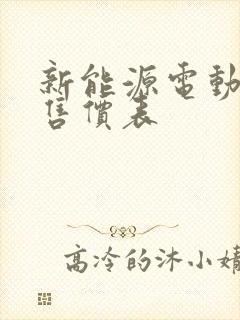 新能源電動
售價表
高冷的沐小婧